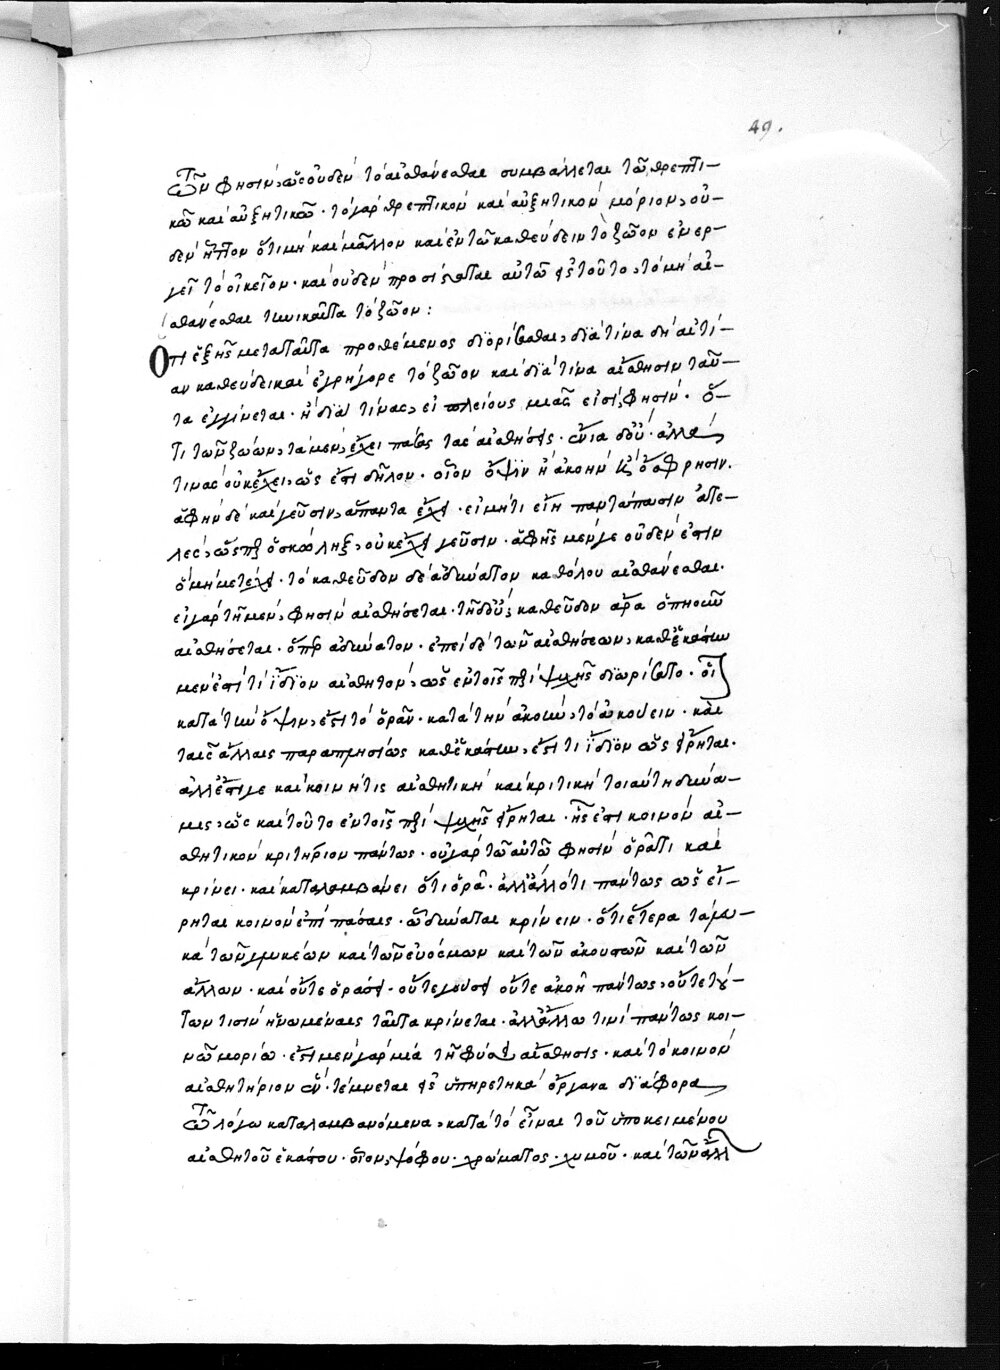 49.
τῶν φησὶν, ὡς οὐδὲν τὸ αἰσθάνεσθαι συμβάλλεται τῶ θρεπτι-
κῶ καὶ αὐξητικῶ· τὸ γὰρ θρεπτικὸν καὶ αὐξητικὸν μόριον, οὐ-
δὲν ἧττον ὅτι μὴ καὶ μᾶλλον καὶ ἐν τῶ καθεύδειν τὸ ζῶον ἐνερ-
γεῖ τὸ οἰκεῖον· καὶ οὐδὲν προσίσταται αὐτῶ εἰς τοῦτο, τὸ μὴ αἰ-
σθάνεσθαι τηνικαῦτα τὸ ζῶον:
Ὅτι ἑξῆς μετὰ ταῦτα προθέμενος διορίσασθαι, διὰ τίνα δὴ αἰτί-
αν καθεύδει καὶ ἐγρήγορε τὸ ζῶον καὶ διὰ τίνα αἴσθησιν ταῦ-
τα ἐγγίνεται· ἢ διὰ τίνας, εἰ πλείους μιᾶς εἰσί, φησὶν· ὅ-
τι τῶν ζώων, τὰ μὲν, ἔχει πάσας τὰς αἰσθήσεις· ἔνια δ' οὔ· ἀλλὰ
τινὰς οὐκ ἔχει, ὥς ἐστι δῆλον· οἷον ὄψιν ἢ ἀκοὴν καὶ ὄσφρησιν.
ἁφὴν δὲ καὶ γεῦσιν, ἅπαντα ἔχει· εἰ μήτι εἴη παντάπασιν ἀτε-
λὲς, ὥσπερ ὁ σκώληξ, οὐκ ἔχει γεῦσιν· ἁφῆς μέν γε οὐδέν ἐστιν
ὃ μὴ μετέχει· τὸ καθεῦδον δὲ ἀδύνατον καθόλου αἰσθάνεσθαι.
εἰ γὰρ τῆ μὲν, φησὶν αἰσθήσεται· τῆ δ' οὔ, καθεῦδον ἄρα ὁπηοῦν
αἰσθήσεται· ὅπερ ἀδύνατον· ἐπεὶ δὲ τῶν αἰσθήσεων, καθ' ἑκάστην
μέν ἐστί τι ἴδιον αἰσθητὸν, ὡς ἐν τοῖς περὶ ψυχῆς διώριστο· οἷ
κατὰ τὴν ὄψιν, ἐστὶ τὸ ὁρᾶν· κατὰ τὴν ἀκοὴν, τὸ ἀκούειν· καὶ
ταῖς ἄλλαις παραπλησίως καθ' ἑκάστην, ἐστί τι ἴδιον ὡς εἴρηται·
ἀλλ' ἔστι γε καὶ κοινή τις αἰσθητικὴ καὶ κριτικὴ τοιαύτη δύνα-
μις, ὡς καὶ τοῦτο ἐν τοῖς περὶ ψυχῆς εἴρηται· ἧς ἐστὶ κοινὸν αἰ-
σθητικὸν κριτήριον πάντως· οὐ γὰρ τῶ αὐτῶ φησὶν ὁρᾶ τι καὶ
κρίνει· καὶ καταλαμβάνει ὅτι ὁρᾶ· ἀλλ' ἄλλό τι πάντως ὡς εἴ-
ρηται κοινὸν ἐπὶ πάσαις· ᾧ δύναται κρίνειν· ὅτι ἕτερα τὰ λευ-
κὰ τῶν γλυκέων καὶ τῶν εὐόσμων καὶ τῶν ἀκουστῶν καὶ τῶν
ἄλλων· καὶ οὔτε ὁράσει· οὔτε γεύσει οὔτε ἀκοῆ πάντως, οὔτε τού-
των τισὶν ἡνωμέναις ταῦτα κρίνεται· ἀλλ' ἄλλω τινὶ πάντως κοι-
νῶ μορίω· ἐστὶ μὲν γὰρ μία τῆ φύσει αἴσθησις· καὶ τὸ κοινὸν
αἰσθητήριον ἕν· τέμνεται εἰς ὑπηρετικὰ ὄργανα διάφορα
τῶ λόγω καταλαμβανόμενα, κατὰ τὸ εἶναι τοῦ ὑποκειμένου
αἰσθητοῦ ἑκάστου· οἷον, ψόφου· χρώματος· χυμοῦ· καὶ τῶν ἄλλ